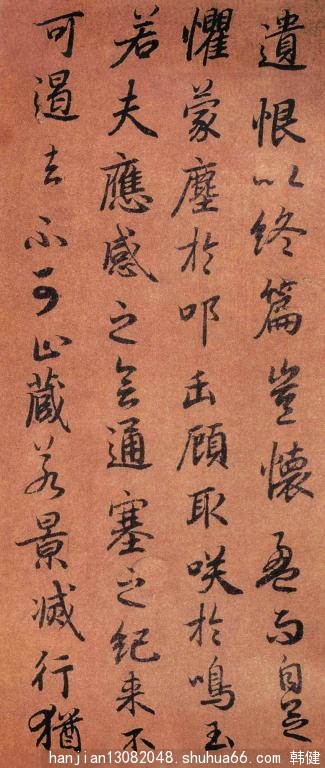 遺恨以終篇豈懷盈而自足
懼蒙塵於叩缶顧取咲於鳴玉
若夫應感之會通塞之紀来不
可遏去不可止藏若景滅行猶
hanjian13082048.shuhua66.com 韩健